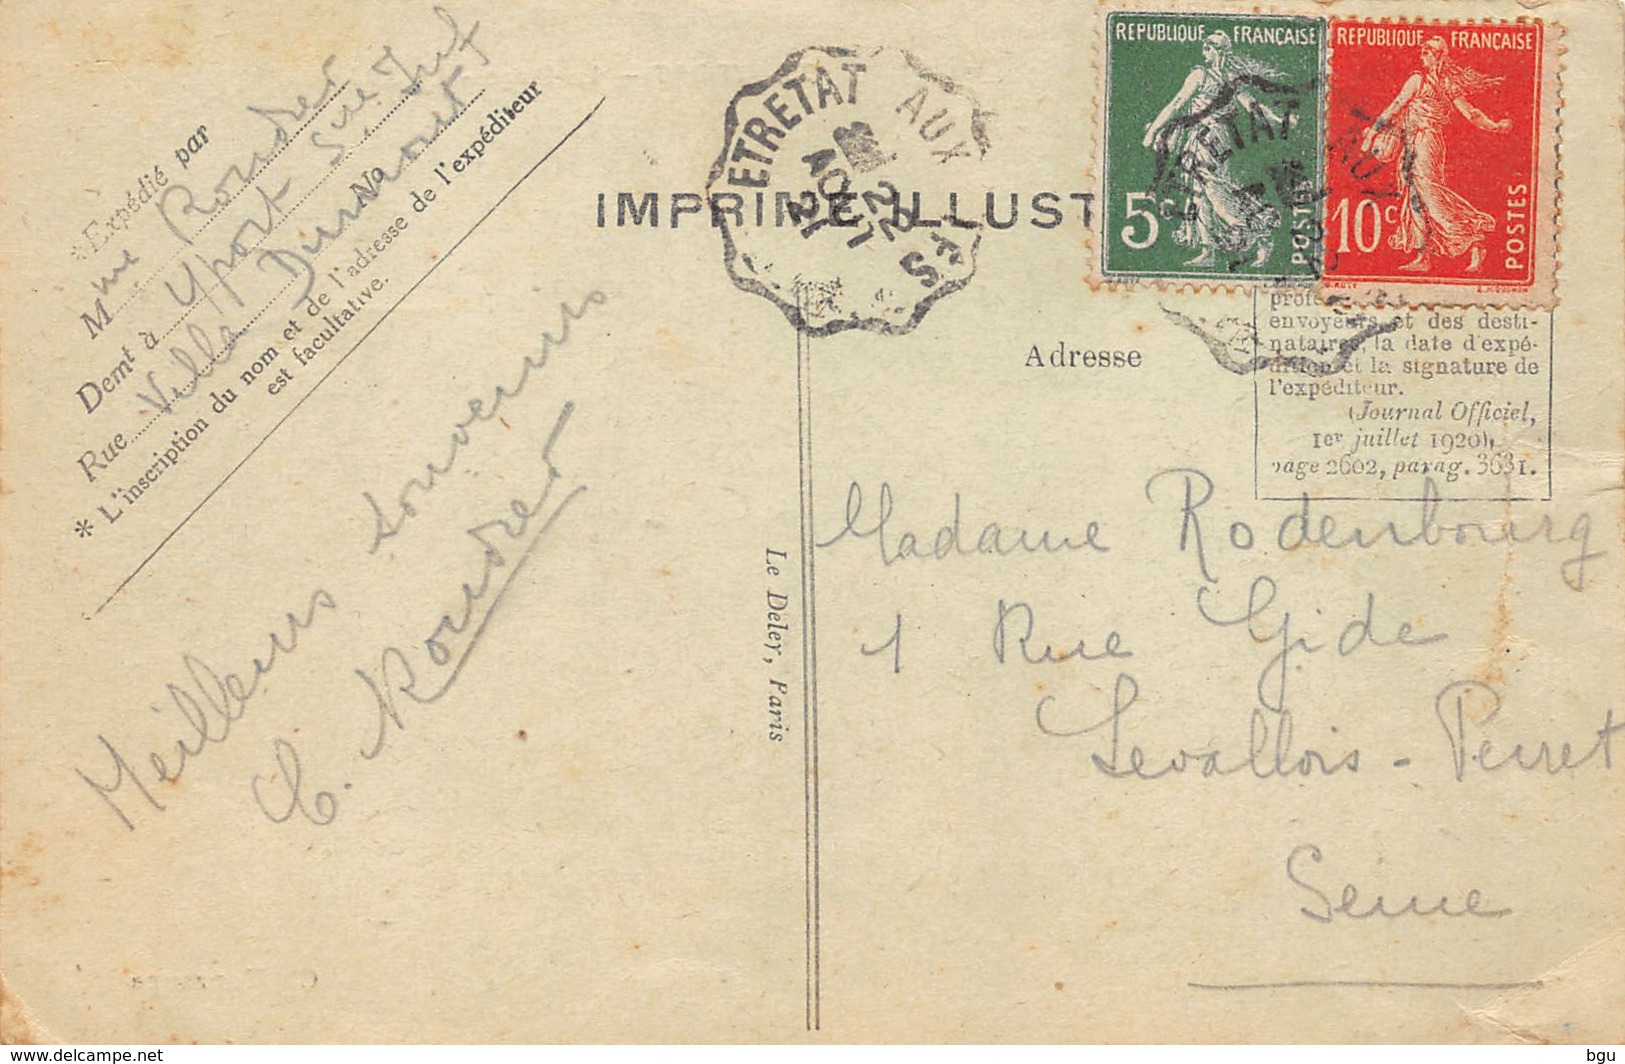 *Expédié par
Mme Rondet
Demt à Yport Sne Inf
Rue Villa No
* L'inscription du nom et de l'adresse de l'expéditeur
est facultative.
Meilleurs souvenirs
C. Rondet
ETRETAT AUX
22
AOUT
21
IMPRIMÉ ILLUST
REPUBLIQUE FRANÇAISE
5c
POSTES
REPUBLIQUE FRANÇAISE
10c
POSTES
ETRETAT AUX
Adresse
envoyeurs et des desti-
nataires, la date d'expé-
dition et la signature de
l'expéditeur.
(Journal Officiel,
1er juillet 1920),
page 2602, parag. 3631.
Le Deley, Paris
Madame Rodenbourg
1 Rue Gide
Levallois-Perret
Seine
delcampe.net
bgu